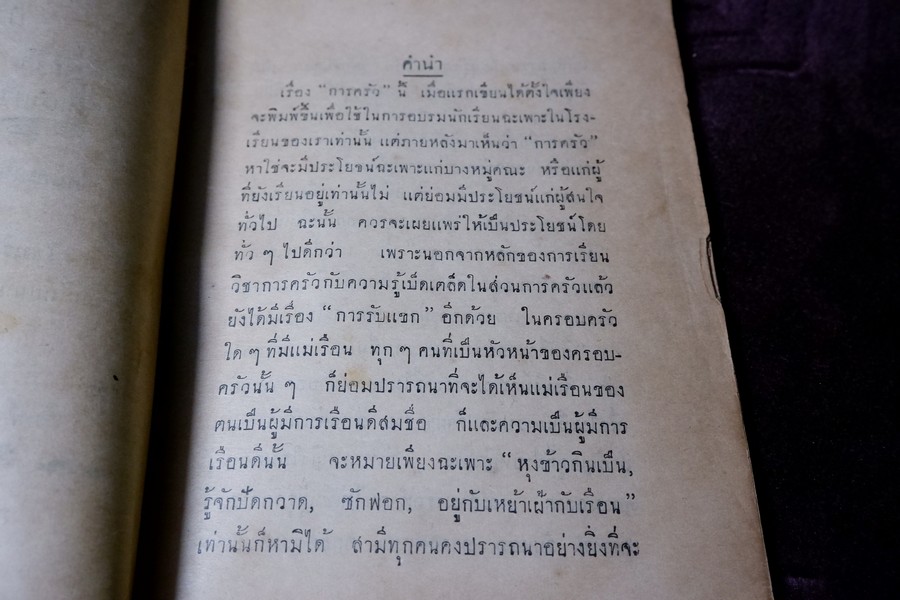 คำนำ
เรื่อง “การครัว” นี้ เมื่อแรกเขียนได้ตั้งใจเพียง
จะพิมพ์ขึ้นเพื่อใช้ในการอบรมนักเรียนฉะเพาะในโรง-
เรียนของเราเท่านั้น แต่ภายหลังมาเห็นว่า “การครัว”
หาใช่จะมีประโยชน์ฉะเพาะแก่บางหมู่คณะ หรือแก่ผู้
ที่ยังเรียนอยู่เท่านั้นไม่ แต่ย่อมมีประโยชน์แก่ผู้สนใจ
ทั่วไป ฉะนั้น ควรจะเผยแพร่ให้เป็นประโยชน์โดย
ทั่ว ๆ ไปดีกว่า เพราะนอกจากหลักของการเรียน
วิชาการครัวกับความรู้เบ็ดเตล็ดในส่วนการครัวแล้ว
ยังได้มีเรื่อง “การรับแขก” อีกด้วย ในครอบครัว
ใด ๆ ที่มีแม่เรือน ทุก ๆ คนที่เป็นหัวหน้าของครอบ-
ครัวนั้น ๆ ก็ย่อมปรารถนาที่จะได้เห็นแม่เรือนของ
ตนเป็นผู้มีการเรือนดีสมชื่อ ก็และความเป็นผู้มีการ
เรือนดีนั้น จะหมายเพียงฉะเพาะ “หุงข้าวกินเป็น,
รู้จักปัดกวาด, ซักฟอก, อยู่กับเหย้าเฝ้ากับเรือน”
เท่านั้นก็หามิได้ สามีทุกคนคงปรารถนาอย่างยิ่งที่จะ